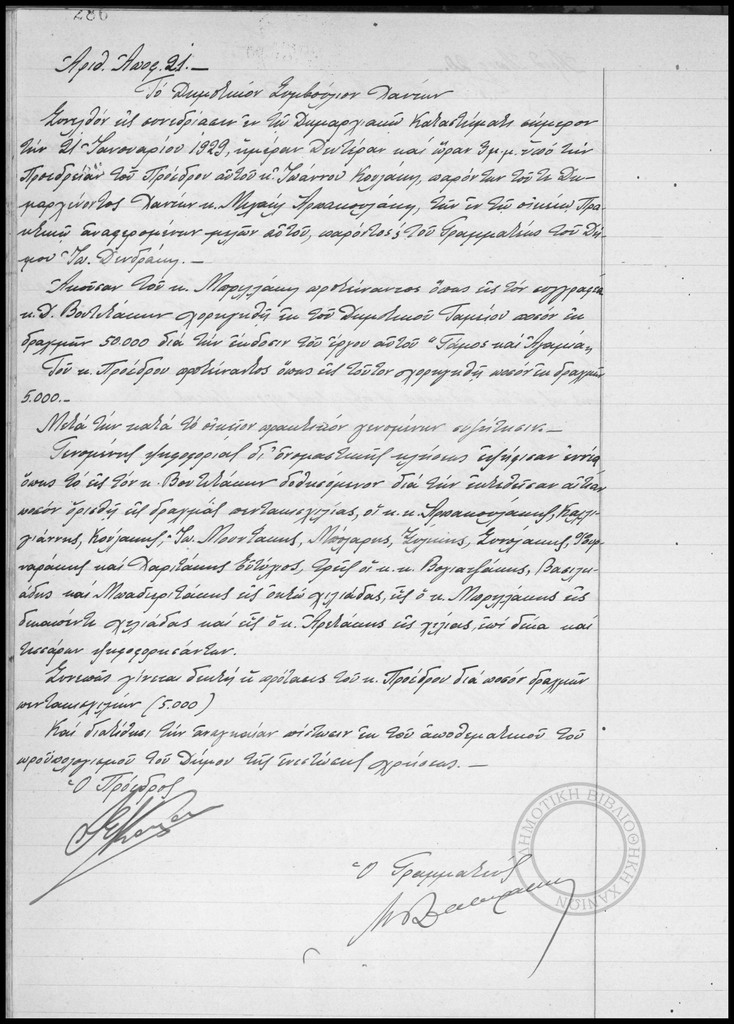 286
Ἀριθ. Ἀποφ. 21.—
Τό Δημοτικόν Συμβούλιον Χανίων
Συνελθόν εἰς συνεδρίασιν ἐν τῷ Δημαρχιακῷ Καταστήματι σήμερον
τήν 21 Ἰανουαρίου 1929, ἡμέραν Δευτέραν καί ὥραν 3 μ.μ. ὑπό τήν
Προεδρείαν τοῦ Προέδρου αὐτοῦ κ. Ἰωάννου Κουλάκη, παρόντων τοῦ τε Δη-
μαρχεύοντος Χανίων κ. Μιχαήλ Ἀρπακουλάκη, τῶν ἐν τῷ οἰκείῳ Πρα-
κτικῷ ἀναφερομένων μελῶν αὐτοῦ, παρόντος καί τοῦ Γραμματέως τοῦ Δή-
μου Ἰω. Δενδράκη.—
Ἀκοῦσαν τοῦ κ. Μπριλλάκη προτείναντος ὅπως εἰς τόν συγγραφέα
κ. Δ. Βουτετάκην χορηγηθῇ ἐκ τοῦ Δημοτικοῦ Ταμείου ποσόν ἐκ
δραχμῶν 50.000 διά τήν ἔκδοσιν τοῦ ἔργου αὐτοῦ "Γάμος καί
Τοῦ κ. Προέδρου προτείναντος ὅπως εἰς τοῦτον χορηγηθῇ ποσόν ἐκ δραχμῶν
5.000.—
Μετά τήν κατά τό οἰκεῖον πρακτικόν γενομένην συζήτησιν.—
Γενομένης ψηφοφορίας δι' ὀνομαστικῆς κλήσεως ἐψήφισαν ἐννέα
ὅπως τό εἰς τόν κ. Βουτετάκην δοθησόμενον διά τήν
ποσόν ὁρισθῇ εἰς δραχμάς πεντακισχιλίας, οἱ κ.κ. Ἀρπακουλάκης, Καλλι-
γιάννης, Κουλάκης, Ἰω. Μουντάκης, Μπόλαρης, Ξυλκης, Συνολάκης,
ναράκης καί Χαριτάκης Εὐτύχιος, τρεῖς οἱ κ.κ. Βογιατζάκης, Βασιλι-
άδης καί Μπαδεριτάκης εἰς ὀκτώ χιλιάδας, εἷς ὁ κ. Μπριλλάκης εἰς
δεκαπέντε χιλιάδας καί εἷς ὁ κ. Ἀρετάκης εἰς χιλίας, ἐπί δέκα καί
τεσσάρων ψηφοφορησάντων.
Συνεπῶς γίνεται δεκτή ἡ πρότασις τοῦ κ. Προέδρου διά ποσόν δραχμῶν
πεντακισχιλίων (5.000)
Καί διατίθησι τήν ἀναγκαίαν πίστωσιν ἐκ τοῦ ἀποθεματικοῦ τοῦ
προϋπολογισμοῦ τοῦ Δήμου τῆς ἐνεστώσης χρήσεως.—
Ὁ Πρόεδρος
Ὁ Γραμματεύς
ΔΗΜΟΤΙΚΗ ΒΙΒΛΙΟΘΗΚΗ ΧΑΝΙΩΝ